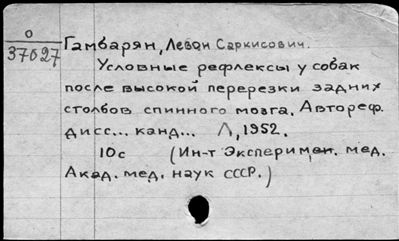 О
37627
Гамбарян, Левон Саркисович.
Условные рефлексы у собак
после высокой перерезки задних
столбов спинного мозга. Автореф.
дисс... канд... Л, 1952.
10с (Ин-т Эксперимен. мед.
Акад. мед. наук СССР.)